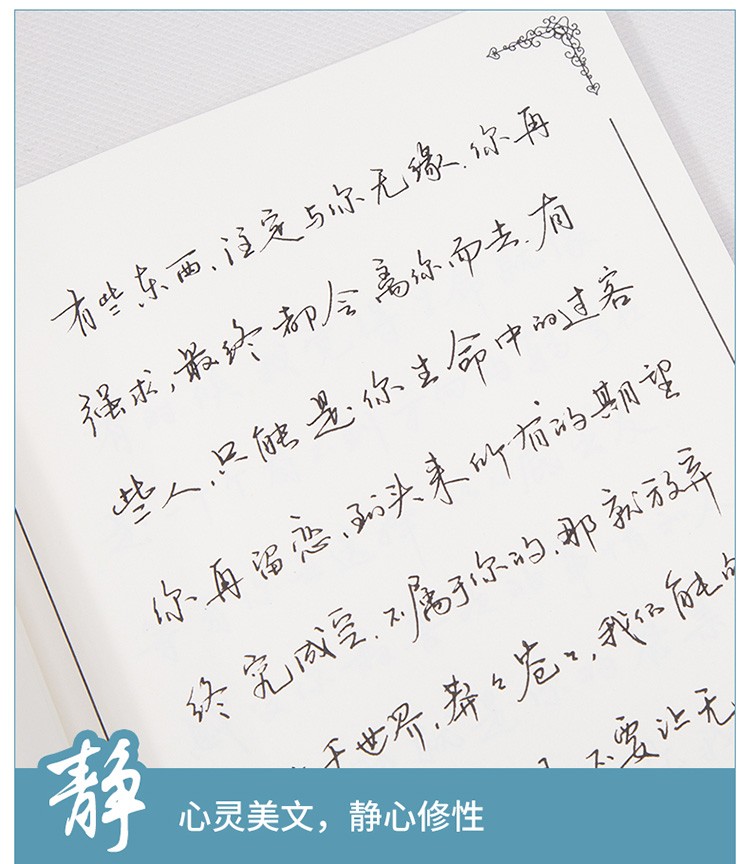 有些东西、注定与你无缘.你再
强求,最终都会离你而去.有
些人,只能是你生命中的过客
你再留恋,到头来所有的期望
终究成空.不属于你的,那就放弃
于世界,莽々苍々,我们能
不要让无
静
心灵美文，静心修性